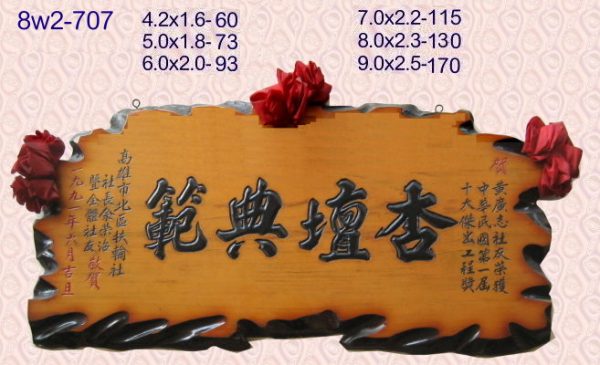 8w2-707
4.2x1.6-60
5.0x1.8-73
6.0x2.0-93
7.0x2.2-115
8.0x2.3-130
9.0x2.5-170
賀
黃廣志社友榮獲
中華民國第一屆
十大傑出工程獎
杏壇典範
高雄市北區扶輪社
社長余榮治
暨全體社友敬賀
一九九一年六月吉旦